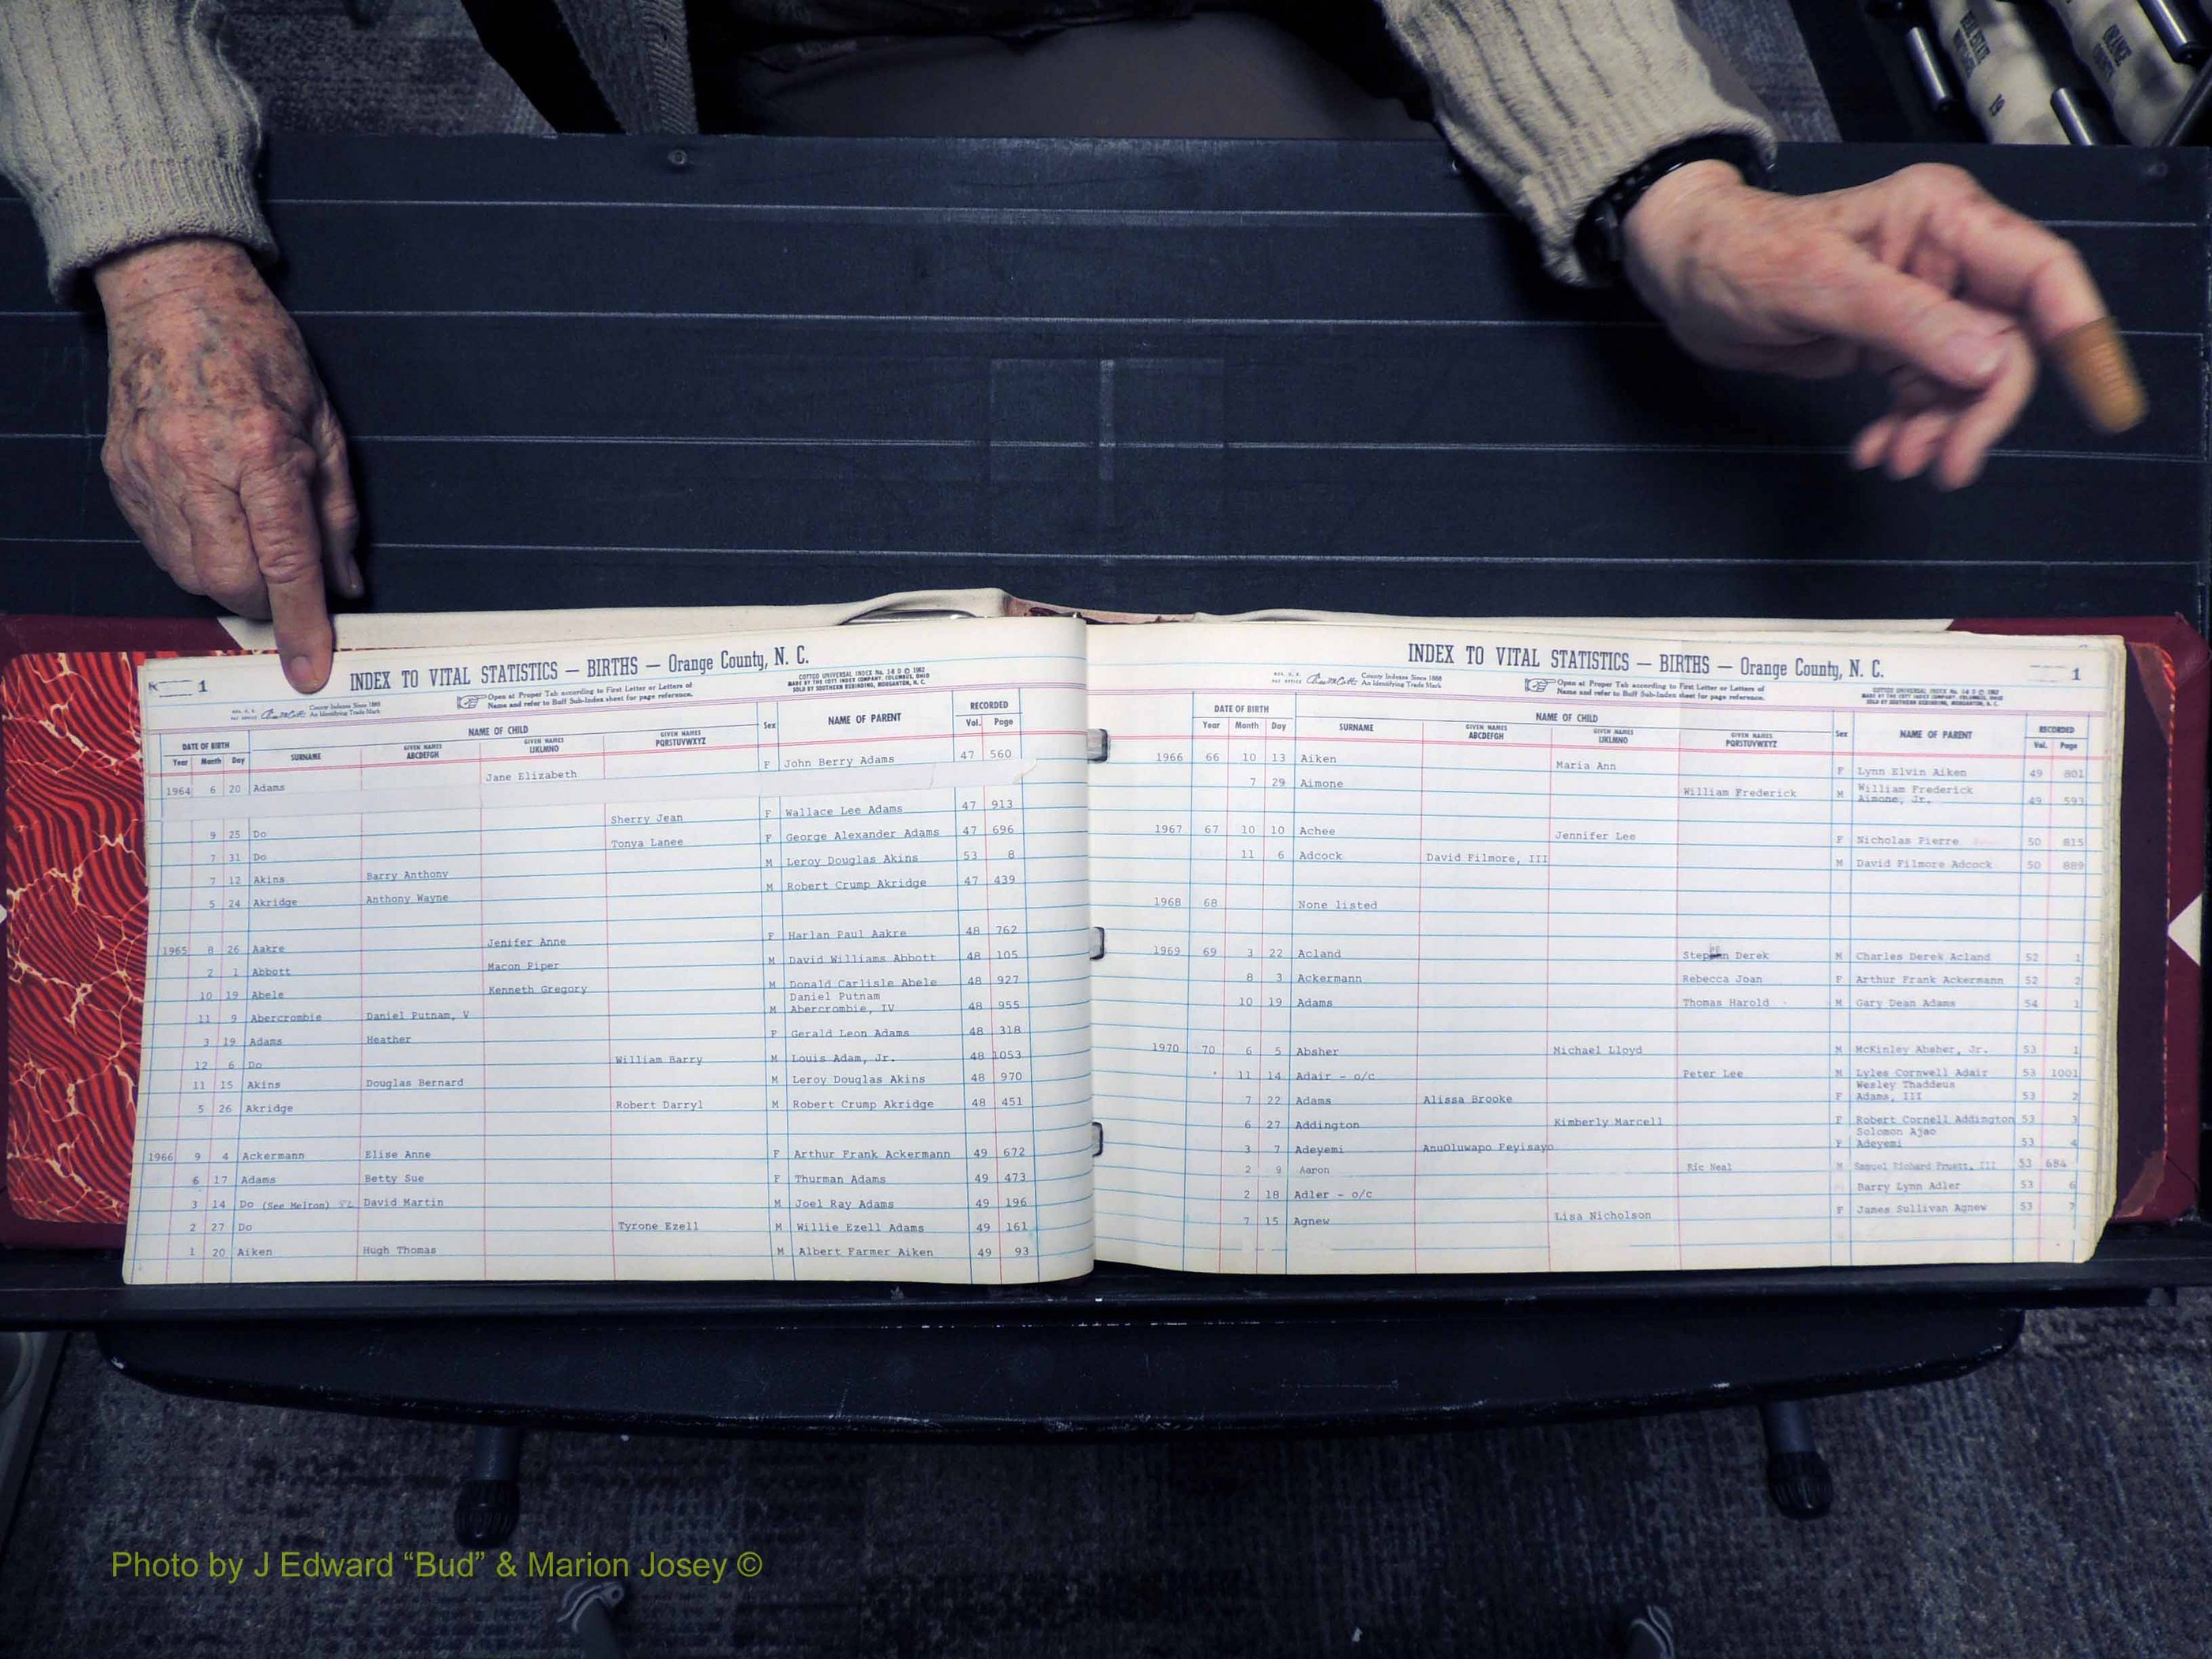 REAL ESTATE
19
ORANGE
1
INDEX TO VITAL STATISTICS — BIRTHS — Orange County, N. C.
County Indexes Since 1888
An Identifying Trade Mark
Open at Proper Tab according to First Letter or Letters of
Name and refer to Buff Sub-Index sheet for page reference.
COTTCO UNIVERSAL INDEX No. 14 D © 1962
MADE BY THE COTT INDEX COMPANY, COLUMBUS, OHIO
SOLD BY SOUTHERN REBINDING, MORGANTON, N. C.
DATE OF BIRTH NAME OF CHILD Sex NAME OF PARENT RECORDED
Year Month Day SURNAME GIVEN NAMES ABCDEFGH GIVEN NAMES IJKLMNO GIVEN NAMES PQRSTUVWXYZ Vol. Page
1964 6 20 Adams Jane Elizabeth F John Berry Adams 47 560
9 25 Do Sherry Jean F Wallace Lee Adams 47 913
7 31 Do Tonya Lanee F George Alexander Adams 47 696
7 12 Akins Barry Anthony M Leroy Douglas Akins 53 8
5 24 Akridge Anthony Wayne M Robert Crump Akridge 47 439
1965 8 26 Aakre Jenifer Anne F Harlan Paul Aakre 48 762
2 1 Abbott Macon Piper M David Williams Abbott 48 105
10 19 Abele Kenneth Gregory M Donald Carlisle Abele 48 927
11 9 Abercrombie Daniel Putnam, V M Daniel Putnam Abercrombie, IV 48 955
3 19 Adams Heather F Gerald Leon Adams 48 318
12 6 Do William Barry M Louis Adam, Jr. 48 1053
11 15 Akins Douglas Bernard M Leroy Douglas Akins 48 970
5 26 Akridge Robert Darryl M Robert Crump Akridge 48 451
1966 9 4 Ackermann Elise Anne F Arthur Frank Ackermann 49 672
6 17 Adams Betty Sue F Thurman Adams 49 473
3 14 Do (See Melton) David Martin M Joel Ray Adams 49 196
2 27 Do Tyrone Ezell M Willie Ezell Adams 49 161
1 20 Aiken Hugh Thomas M Albert Farmer Aiken 49 93
INDEX TO VITAL STATISTICS — BIRTHS — Orange County, N. C.
1
County Indexes Since 1888
An Identifying Trade Mark
Open at Proper Tab according to First Letter or Letters of
Name and refer to Buff Sub-Index sheet for page reference.
COTTCO UNIVERSAL INDEX No. 14 D © 1962
MADE BY THE COTT INDEX COMPANY, COLUMBUS, OHIO
SOLD BY SOUTHERN REBINDING, MORGANTON, N. C.
DATE OF BIRTH NAME OF CHILD Sex NAME OF PARENT RECORDED
Year Month Day SURNAME GIVEN NAMES ABCDEFGH GIVEN NAMES IJKLMNO GIVEN NAMES PQRSTUVWXYZ Vol. Page
1966 66 10 13 Aiken Maria Ann F Lynn Elvin Aiken 49 801
7 29 Aimone William Frederick M William Frederick Aimone, Jr. 49 593
1967 67 10 10 Achee Jennifer Lee F Nicholas Pierre 50 815
11 6 Adcock David Filmore, III M David Filmore Adcock 50 889
1968 68 None listed
1969 69 3 22 Acland Stephen Derek M Charles Derek Acland 52 1
8 3 Ackermann Rebecca Joan F Arthur Frank Ackermann 52 2
10 19 Adams Thomas Harold M Gary Dean Adams 54 1
1970 70 6 5 Absher Michael Lloyd M McKinley Absher, Jr. 53 1
11 14 Adair - o/c Peter Lee M Lyles Cornwell Adair 53 1001
7 22 Adams Alissa Brooke F Wesley Thaddeus Adams, III 53 2
6 27 Addington Kimberly Marcell F Robert Cornell Addington 53 3
3 7 Adeyemi AnuOluwapo Feyisayo F Solomon Ajao Adeyemi 53 4
2 9 Aaron Ric Neal M Samuel Richard Pruett, III 53 684
2 18 Adler - o/c Barry Lynn Adler 53 6
7 15 Agnew Lisa Nicholson F James Sullivan Agnew 53 7
Photo by J Edward “Bud” & Marion Josey ©